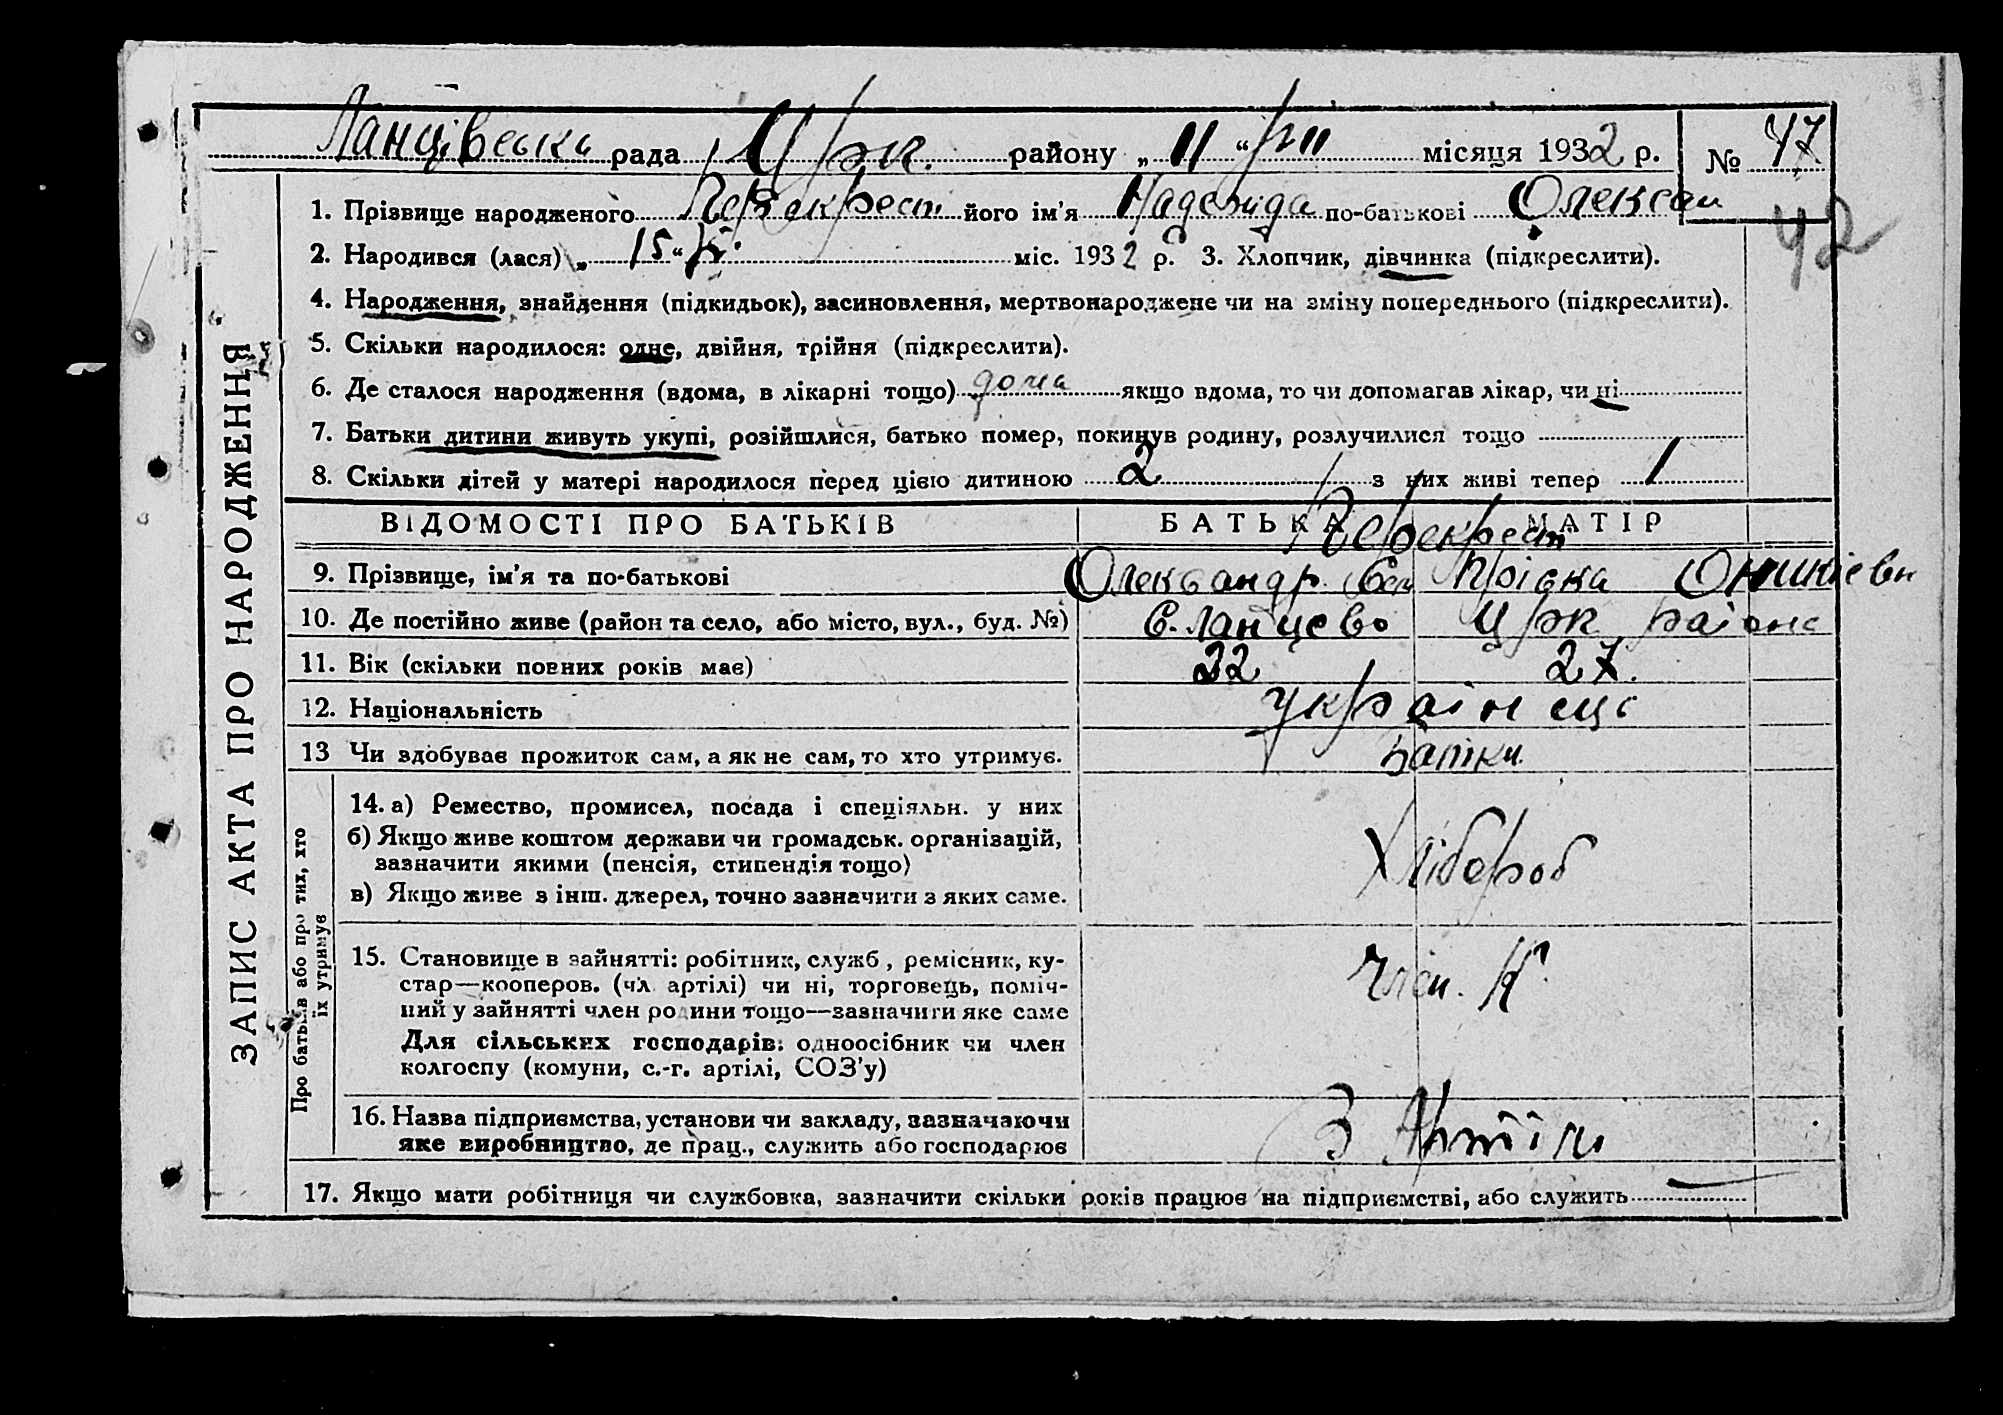 Ланцівська рада Црк. району „ 11 “ VIII місяця 1932 р. № 47
1. Прізвище народженого Перекрест його ім’я Надежда по-батькові Олексан
42
2. Народився (лася) „ 15 “ міс. 1932 р. 3. Хлопчик, дівчинка (підкреслити).
4. Народження, знайдення (підкидьок), засиновлення, мертвонароджене чи на зміну попереднього (підкреслити).
5. Скільки народилося: одне, двійня, трійня (підкреслити).
6. Де сталося народження (вдома, в лікарні тощо) дома якщо вдома, то чи допомагав лікар, чи ні
7. Батьки дитини живуть укупі, розійшлися, батько помер, покинув родину, розлучилися тощо
8. Скільки дітей у матері народилося перед цією дитиною 2 з них живі тепер 1
ЗАПИС АКТА ПРО НАРОДЖЕННЯ
ВІДОМОСТІ ПРО БАТЬКІВ БАТЬКА МАТІР
Перекрест
9. Прізвище, ім’я та по-батькові Олександр
10. Де постійно живе (район та село, або місто, вул., буд. №) С. Ланцево Црк района
11. Вік (скільки повних років має) 32 27.
12. Національність українець
13 Чи здобуває прожиток сам, а як не сам, то хто утримує. Батіки
Про батьків або про тих, хто
їх утримує
14. а) Ремество, промисел, посада і спеціяльн. у них
б) Якщо живе коштом держави чи громадськ. організацій,
зазначити якими (пенсія, стипендія тощо)
Хлібороб
в) Якщо живе з інш. джерел, точно зазначити з яких саме.
15. Становище в зайнятті: робітник, служб, ремісник, ку-
стар—кооперов. (чл. артілі) чи ні, торговець, поміч-
ний у зайнятті член родини тощо—зазначити яке саме
Член. К.
Для сільських господарів: одноосібник чи член
колгоспу (комуни, с.-г. артілі, СОЗ’у)
16. Назва підприємства, установи чи закладу, зазначаючи
яке виробництво, де прац., служить або господарює
З Артіли
17. Якщо мати робітниця чи службовка, зазначити скільки років працює на підприємстві, або служить —